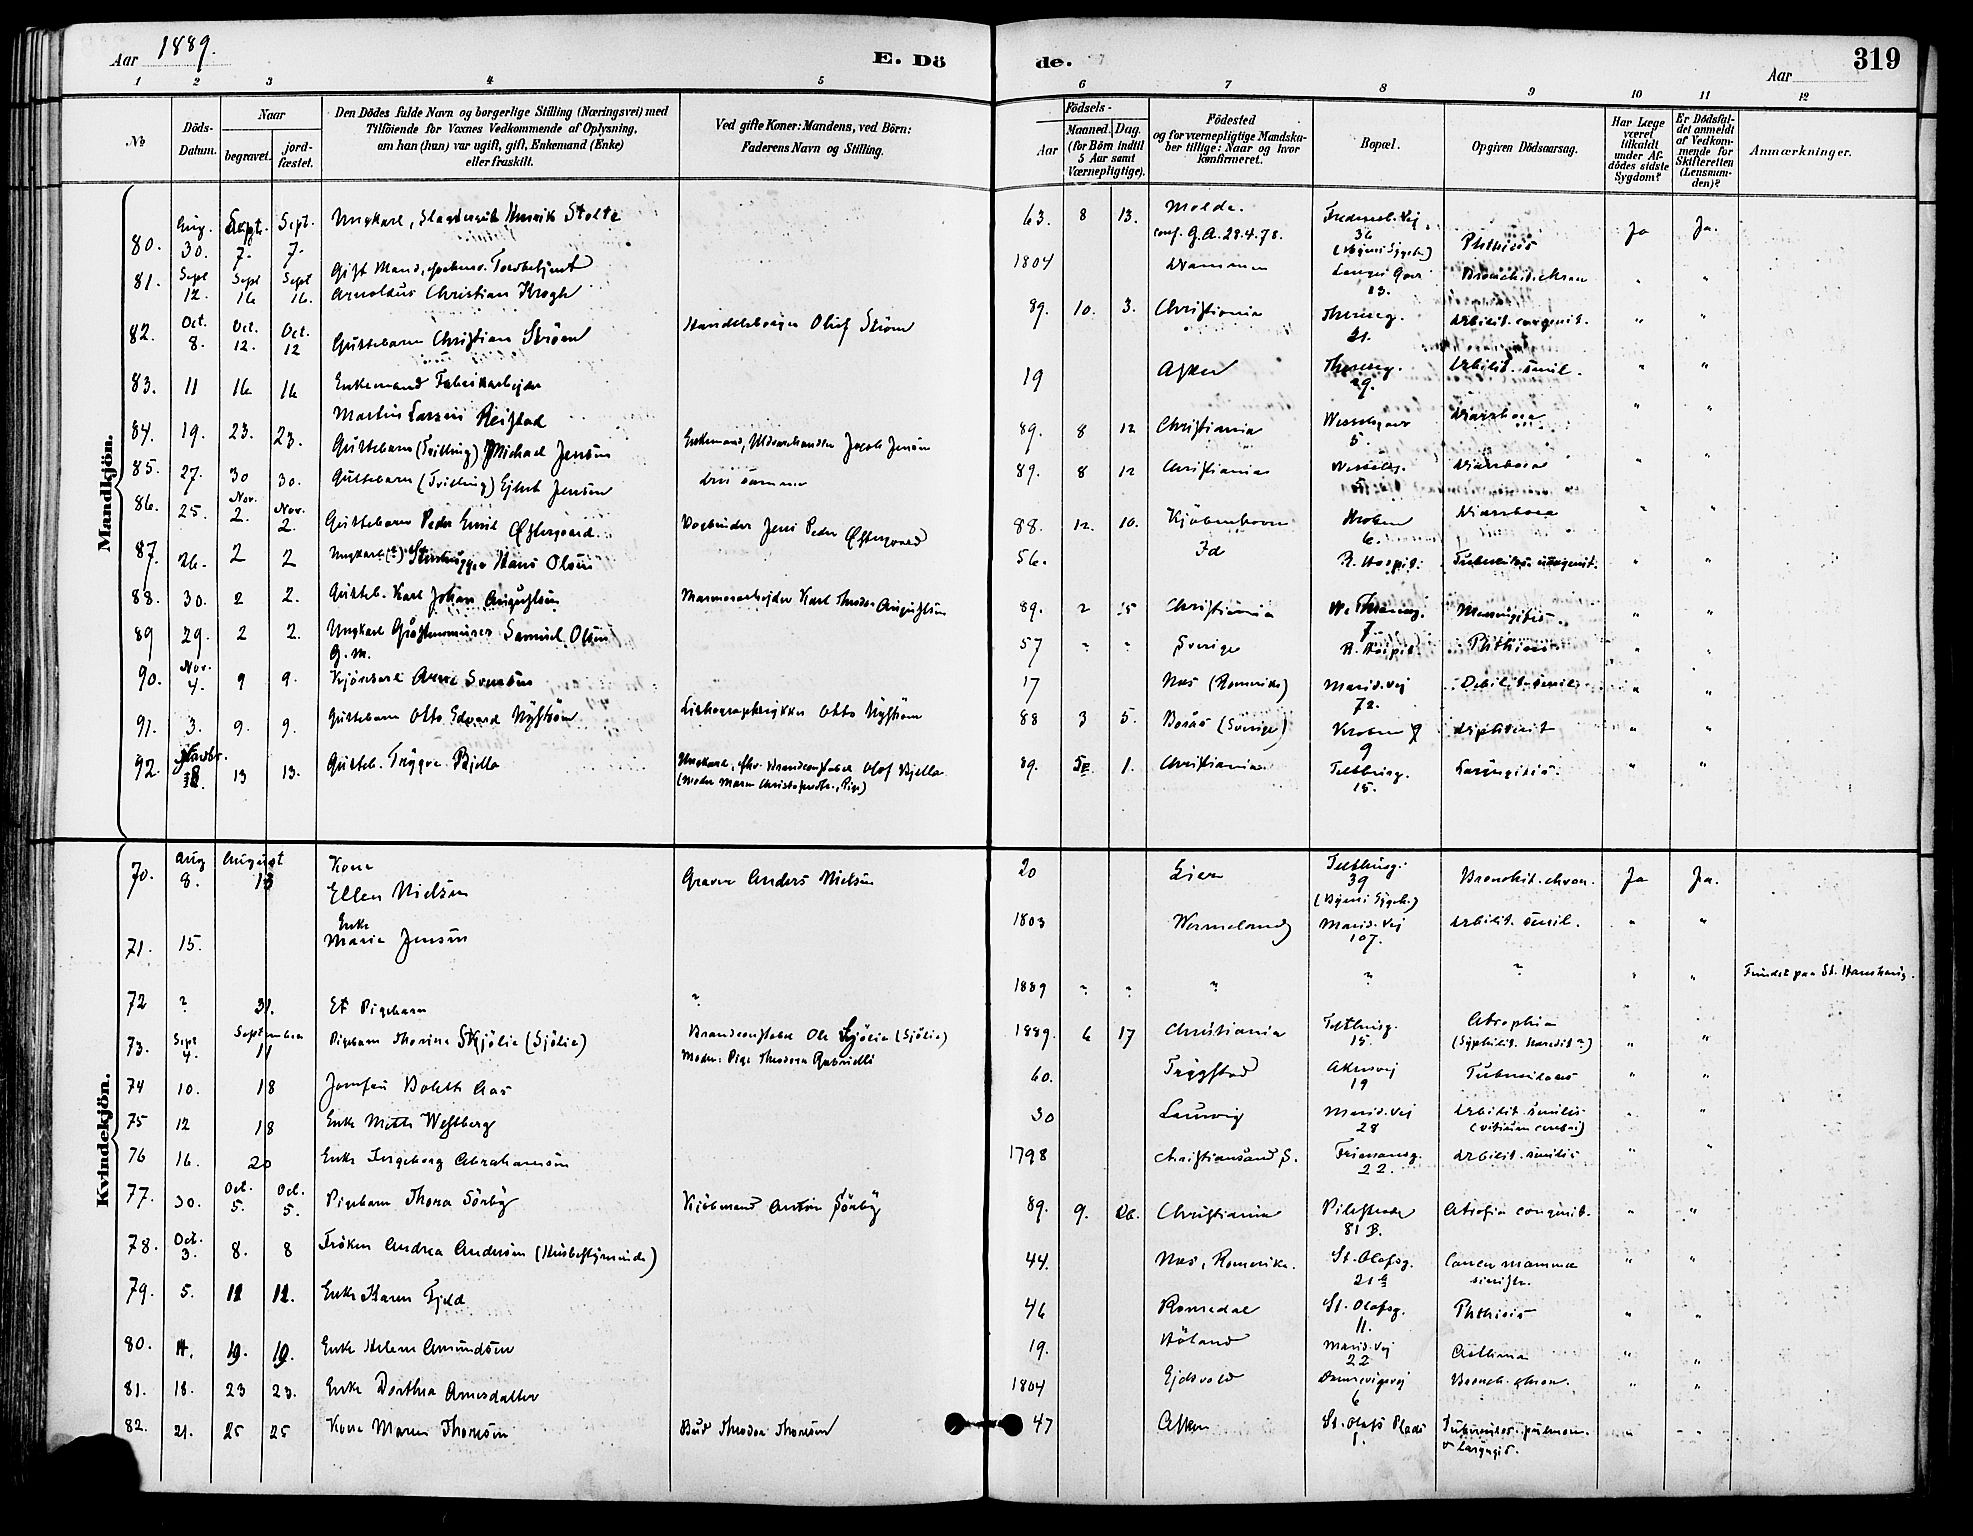 Aar 1889.
E. Dö de.
Aar
319
1 2 3 4 5 6 7 8 9 10 11 12
No
Döds-Datum.
Naar
begravet.
jord-fæstet.
Den Dödes fulde Navn og borgerlige Stilling (Næringsvei) med
Tilföiende for Voxnes Vedkommende af Oplysning,
om han (hun) var ugift, gift, Enkemand (Enke)
eller fraskilt.
Ved gifte Koner: Mandens, ved Börn:
Faderens Navn og Stilling.
Födsels-
Aar
Maaned. Dag.
(for Börn indtil
5 Aar samt
Værnepligtige).
Födested
og for værnepligtige Mandska-
ber tillige: Naar og hvor
konfirmeret.
Bopæl.
Opgiven Dödsaarsag.
Har Læge
været
tilkaldt
under Af-
dödes sidste
Sygdom?
Er Dödsfal-
det anmeldt
af Vedkom-
mende for
Skifteretten
(Lensman-
den)?
Anmærkninger.
Mandkjön.
80. Aug. 30. Sept. 7. Sept. 7. Ungkarl, Henrik Stolte 63. 8 13. Molde. conf. G.A. 28.4.78. 36 Phthisis Ja Ja.
81. Sept 12. Sept 16 Sept 16. Gift Mand, Arnoldus Christian Krogh 1804 Drammen 13. Bronchit. chron " "
82. Oct. 8. Oct. 12. Oct. 12 Guttebarn Christian Ström Olaf Ström 89. 10. 3. Christiania Thereseg. 21. Debilit. congenit. " "
83. 11 16 16 Enkemand Fabrikarbejder Martin Larsen Reistad 19 Asker Thereseg. 29. Debilit. senil. " "
84. 19. 23. 23. Guttebarn (Tvilling) Michael Jensen Enkemand, Jacob Jensen 89. 8 12 Christiania 5. Diarrhoea " "
85. 27. 30 30. Guttebarn (Tvilling) Ejlert Jensen den samme 89. 8 12 Christiania 5 Diarrhoea " "
86. 25. Nov. 2. Nov. 2. Guttebarn Peder Emil Østergaard. Bogbinder Jens Peder Østergaard 88. 12. 10. Kjöbenhavn 6. Diarrhoea " "
87. 26. 2 2 Ungkarl (?) Stenhugger Hans Olsen 56. Id R. Hospit. " "
88. 30. 2 2. Gutteb. Karl Johan Augustsen Marmorarbejder Karl Theodor Augustsen 89. 2 15 Christiania 7. Meningitis " "
89 29. 2 2. Ungkarl Samuel Olsen G.M. 57 " " Sverige R. Hospit. Phthisis " "
90. Nov. 4. 9 9. Arne Svensen 17 Næs (Romerike) Marid.vej 72. Debilit. senil. " "
91. 3. 9. 9. Guttebarn Otto Edvard Nyström Lithographtrykker Otto Nyström 88 3 5. Borås (Sverige) 9 Diphterit " "
92. 8. 13 13. Gutteb. Trygve Bjella Ungkarl, Brandconstabel Olof Bjella
(Moder Maren , Pige) 89. 1. Christiania Telthusg. 15. Laryngitis. " "
Kvindekjön.
70. Aug 8. August 13 Kone Ellen Nielsen Graver Anders Nielsen 20 Lier Telthusg. 39 (Byens Sygeh.) Bronchit. chron. Ja Ja.
71. 15. Enke Maria Jensen 1803 Wermeland Marid.vej 107. Debilit. senil. " "
72 ? 31. Et Pigebarn ? 1889 " " ? ? ? " " Fundet paa St. Hanshaug.
73. Sept 4. September 11 Pigebarn Thorina Skjölie (Sjölie) Brandconstabel Ole Sjölie (Sjölie)
Moder: Pige Theodora 1889. 6 17 Christiania Telthusg. 15. Atrophia (Syphilit. heredit?) " "
74 10. 18 Jomfru Bolette Aas 60. Trygstad Akersvej 19 Tuberculosis " "
75 12 18 Enke Mette Westberg 30 Laurvig Marid.vej 28 Debilit. senilis (vitium cerebri) " "
76 16. 20 Enke Ingeborg Abrahamsen 1798 Christiansand S. 22. Debilit. senilis " "
77. 30. Oct. 5. Oct. 5. Pigebarn Thora Sörby Kjöbmand Anton Sörby 89. 9. 26. Christiania Pilestrædet 81 B. Atrofia congenit. " "
78. Oct. 3. 8. 8 Fröken Andrea Andersen (Husbestyrerinde) 44. Næs, Romerike. St. Olafsg. 21 Cancer mammæ sinistr. " "
79. 5. 12 12. Enke Karen Fjeld 46 Romedal St. Olafsg. 11. Phthisis " "
80. 19. 19. Enke Helene Amundsen 19. Höland Marid.vej 22 Asthma " "
81. 18. 23 23. Enke Dorthea Arnesdatter 1804 Ejdsvold 6 Bronch. chron. " "
82. 21. 25 25 Kone Maren Thoresen Bud Theodor Thoresen 47 Asker St. Olafs Plads 1. Tuberculos. pulmon. & laryngis. " "